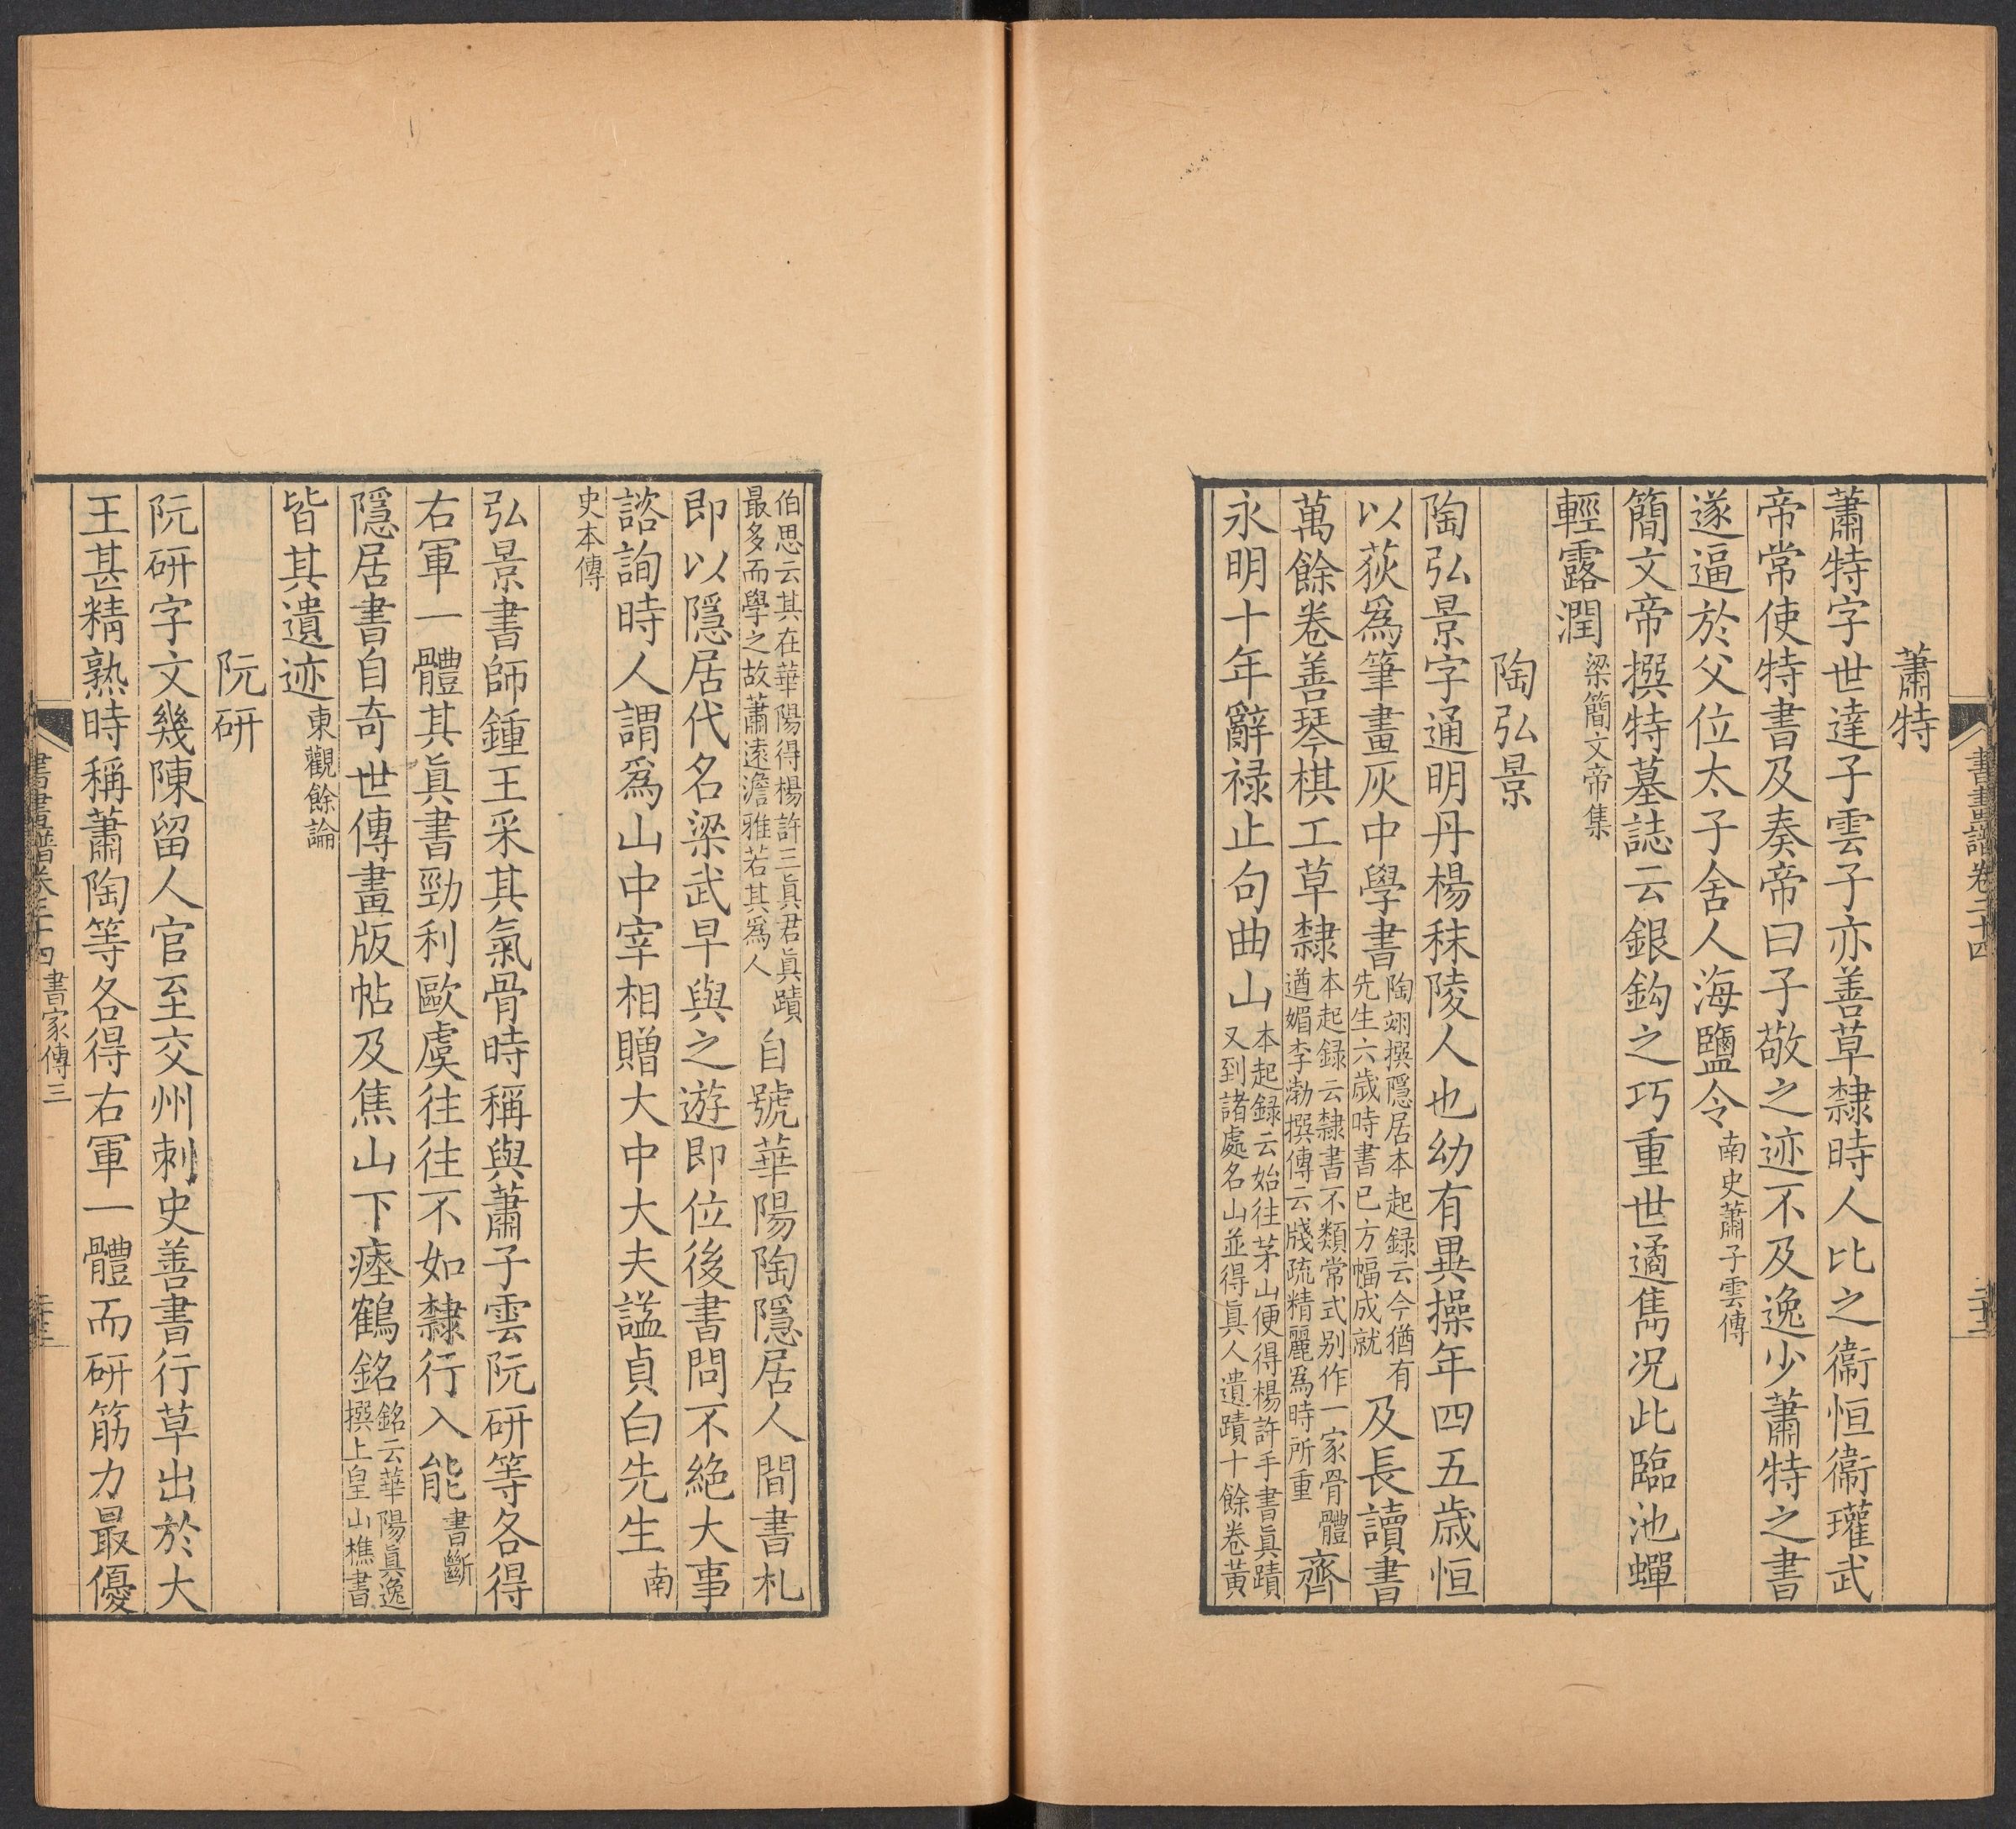 蕭特
蕭特字世達子雲子亦善草隸時人比之衞恒衞瓘武
帝常使特書及奏帝曰子敬之迹不及逸少蕭特之書
遂逼於父位太子舍人海鹽令南史蕭子雲傳
簡文帝撰特墓誌云銀鈎之巧重世遹雋况此臨池蟬
輕露潤梁簡文帝集
陶弘景
陶弘景字通明丹楊秣陵人也幼有異操年四五歲恒
以荻爲筆畫灰中學書陶翊撰隱居本起録云今猶有先生六歲時書已方幅成就及長讀書
萬餘卷善琴棋工草隸本起録云隸書不類常式别作一家骨體遒媚李渤撰傳云牋疏精麗爲時所重齊
永明十年辭禄止句曲山本起録云始往茅山便得楊許手書眞蹟又到諸處名山並得眞人遺蹟十餘卷黄
書畫譜卷二十四
伯思云其在華陽得楊許三眞君眞蹟最多而學之故蕭遠澹雅若其爲人自號華陽陶隱居人間書札
即以隱居代名梁武早與之遊即位後書問不絶大事
諮詢時人謂爲山中宰相贈大中大夫謚貞白先生南
史本傳
弘景書師鍾王采其氣骨時稱與蕭子雲阮研等各得
右軍一體其眞書勁利歐虞往往不如隸行入能書斷
隱居書自奇世傳畫版帖及焦山下瘞鶴銘銘云華陽眞逸撰上皇山樵書
皆其遺迹東觀餘論
阮研
阮研字文幾陳留人官至交州刺史善書行草出於大
王甚精熟時稱蕭陶等各得右軍一體而研筋力最優
書畫譜卷二十四 書家傳三